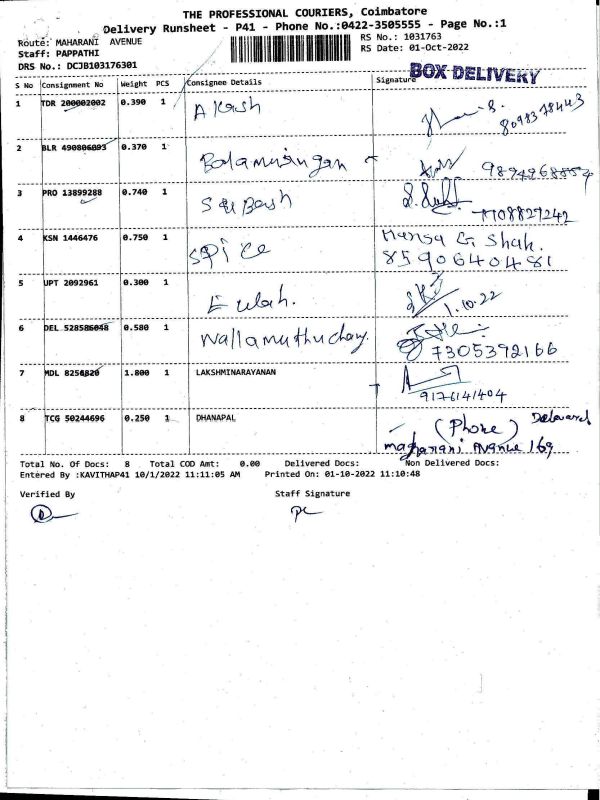 THE PROFESSIONAL COURIERS, Coimbatore
Delivery Runsheet - P41 - Phone No.:0422-3505555 - Page No.:1
Route: MAHARANI AVENUE
RS No.: 1031763
Staff: PAPPATHI
RS Date: 01-Oct-2022
DRS No.: DCJB103176301
BOX DELIVERY
S No Consignment No Weight PCS Consignee Details Signature
1 TDR 200002002 0.390 1 Akash
8098378443
2 BLR 490806093 0.370 1
Balamurugan
9894968854
3 PRO 13899288 0.740 1 Subash
7708827242
4 KSN 1446476 0.750 1 Spice Hansa G. Shah.
8590640481
5 UPT 2092961 0.300 1
1.10.22
6 DEL 528586048 0.580 1
7305392166
7 MDL 8256820 1.800 1 LAKSHMINARAYANAN
9176141404
8 TCG 50244696 0.250 1 DHANAPAL (Phone)
maharani Avanue 169
Total No. Of Docs: 8 Total COD Amt: 0.00 Delivered Docs: Non Delivered Docs:
Entered By :KAVITHAP41 10/1/2022 11:11:05 AM Printed On: 01-10-2022 11:10:48
Verified By Staff Signature